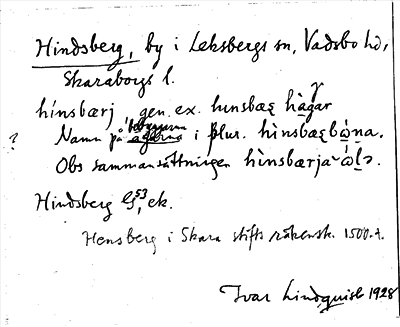 Hindsberg, by i Leksbergs sn, Vadsbo hd,
Skaraborgs l.
hínsbærj gen. ex. hinsbæş hàgar
? Namn på bebyggarna i plur. hìnsbæşbẁna.
Obs sammansättningen hìnsbærja
Hindsberg G 53, 1 ek.
Hensberg i Skara stifts räkensk. 1500-t.
Ivar Lindquist 1928